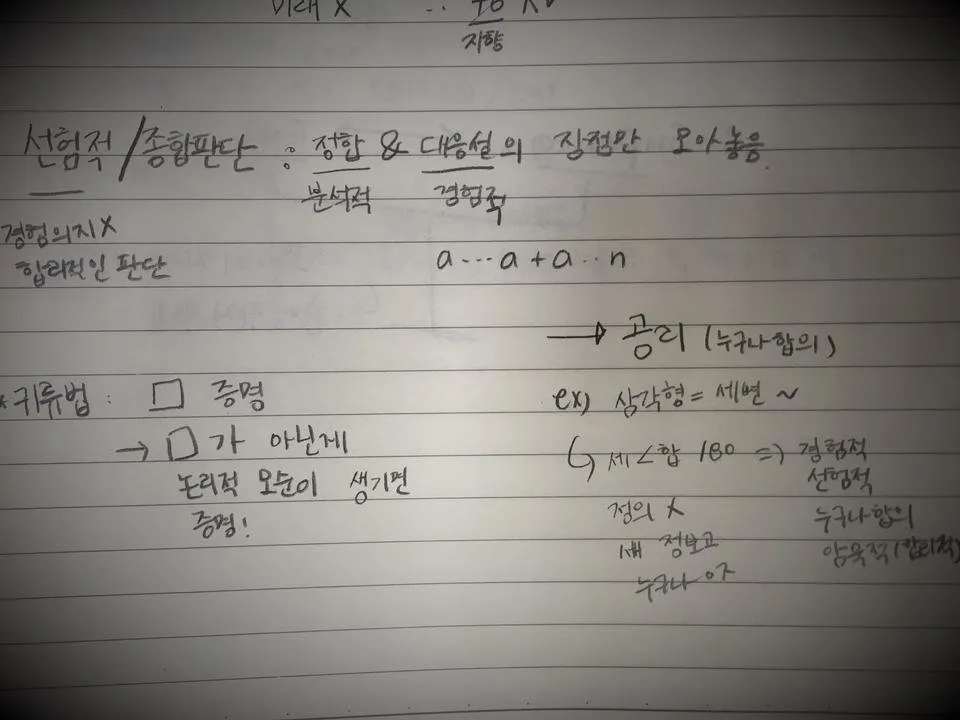 미래 X
지향
선험적/종합판단 : 정합 & 대응설의 장점만 모아놓음
분석적 경험적
경험의지X
합리적인 판단
a...a+a..n
→ 공리 (누구나합의)
*귀류법 : □ 증명
→ □가 아닌게
논리적 모순이 생기면
증명!
ex) 삼각형 = 세변 ~
↳ 세∠합 180 => 경험적
선험적
정의 X 누구나합의
새 정보고 암묵적(합리적)
누구나